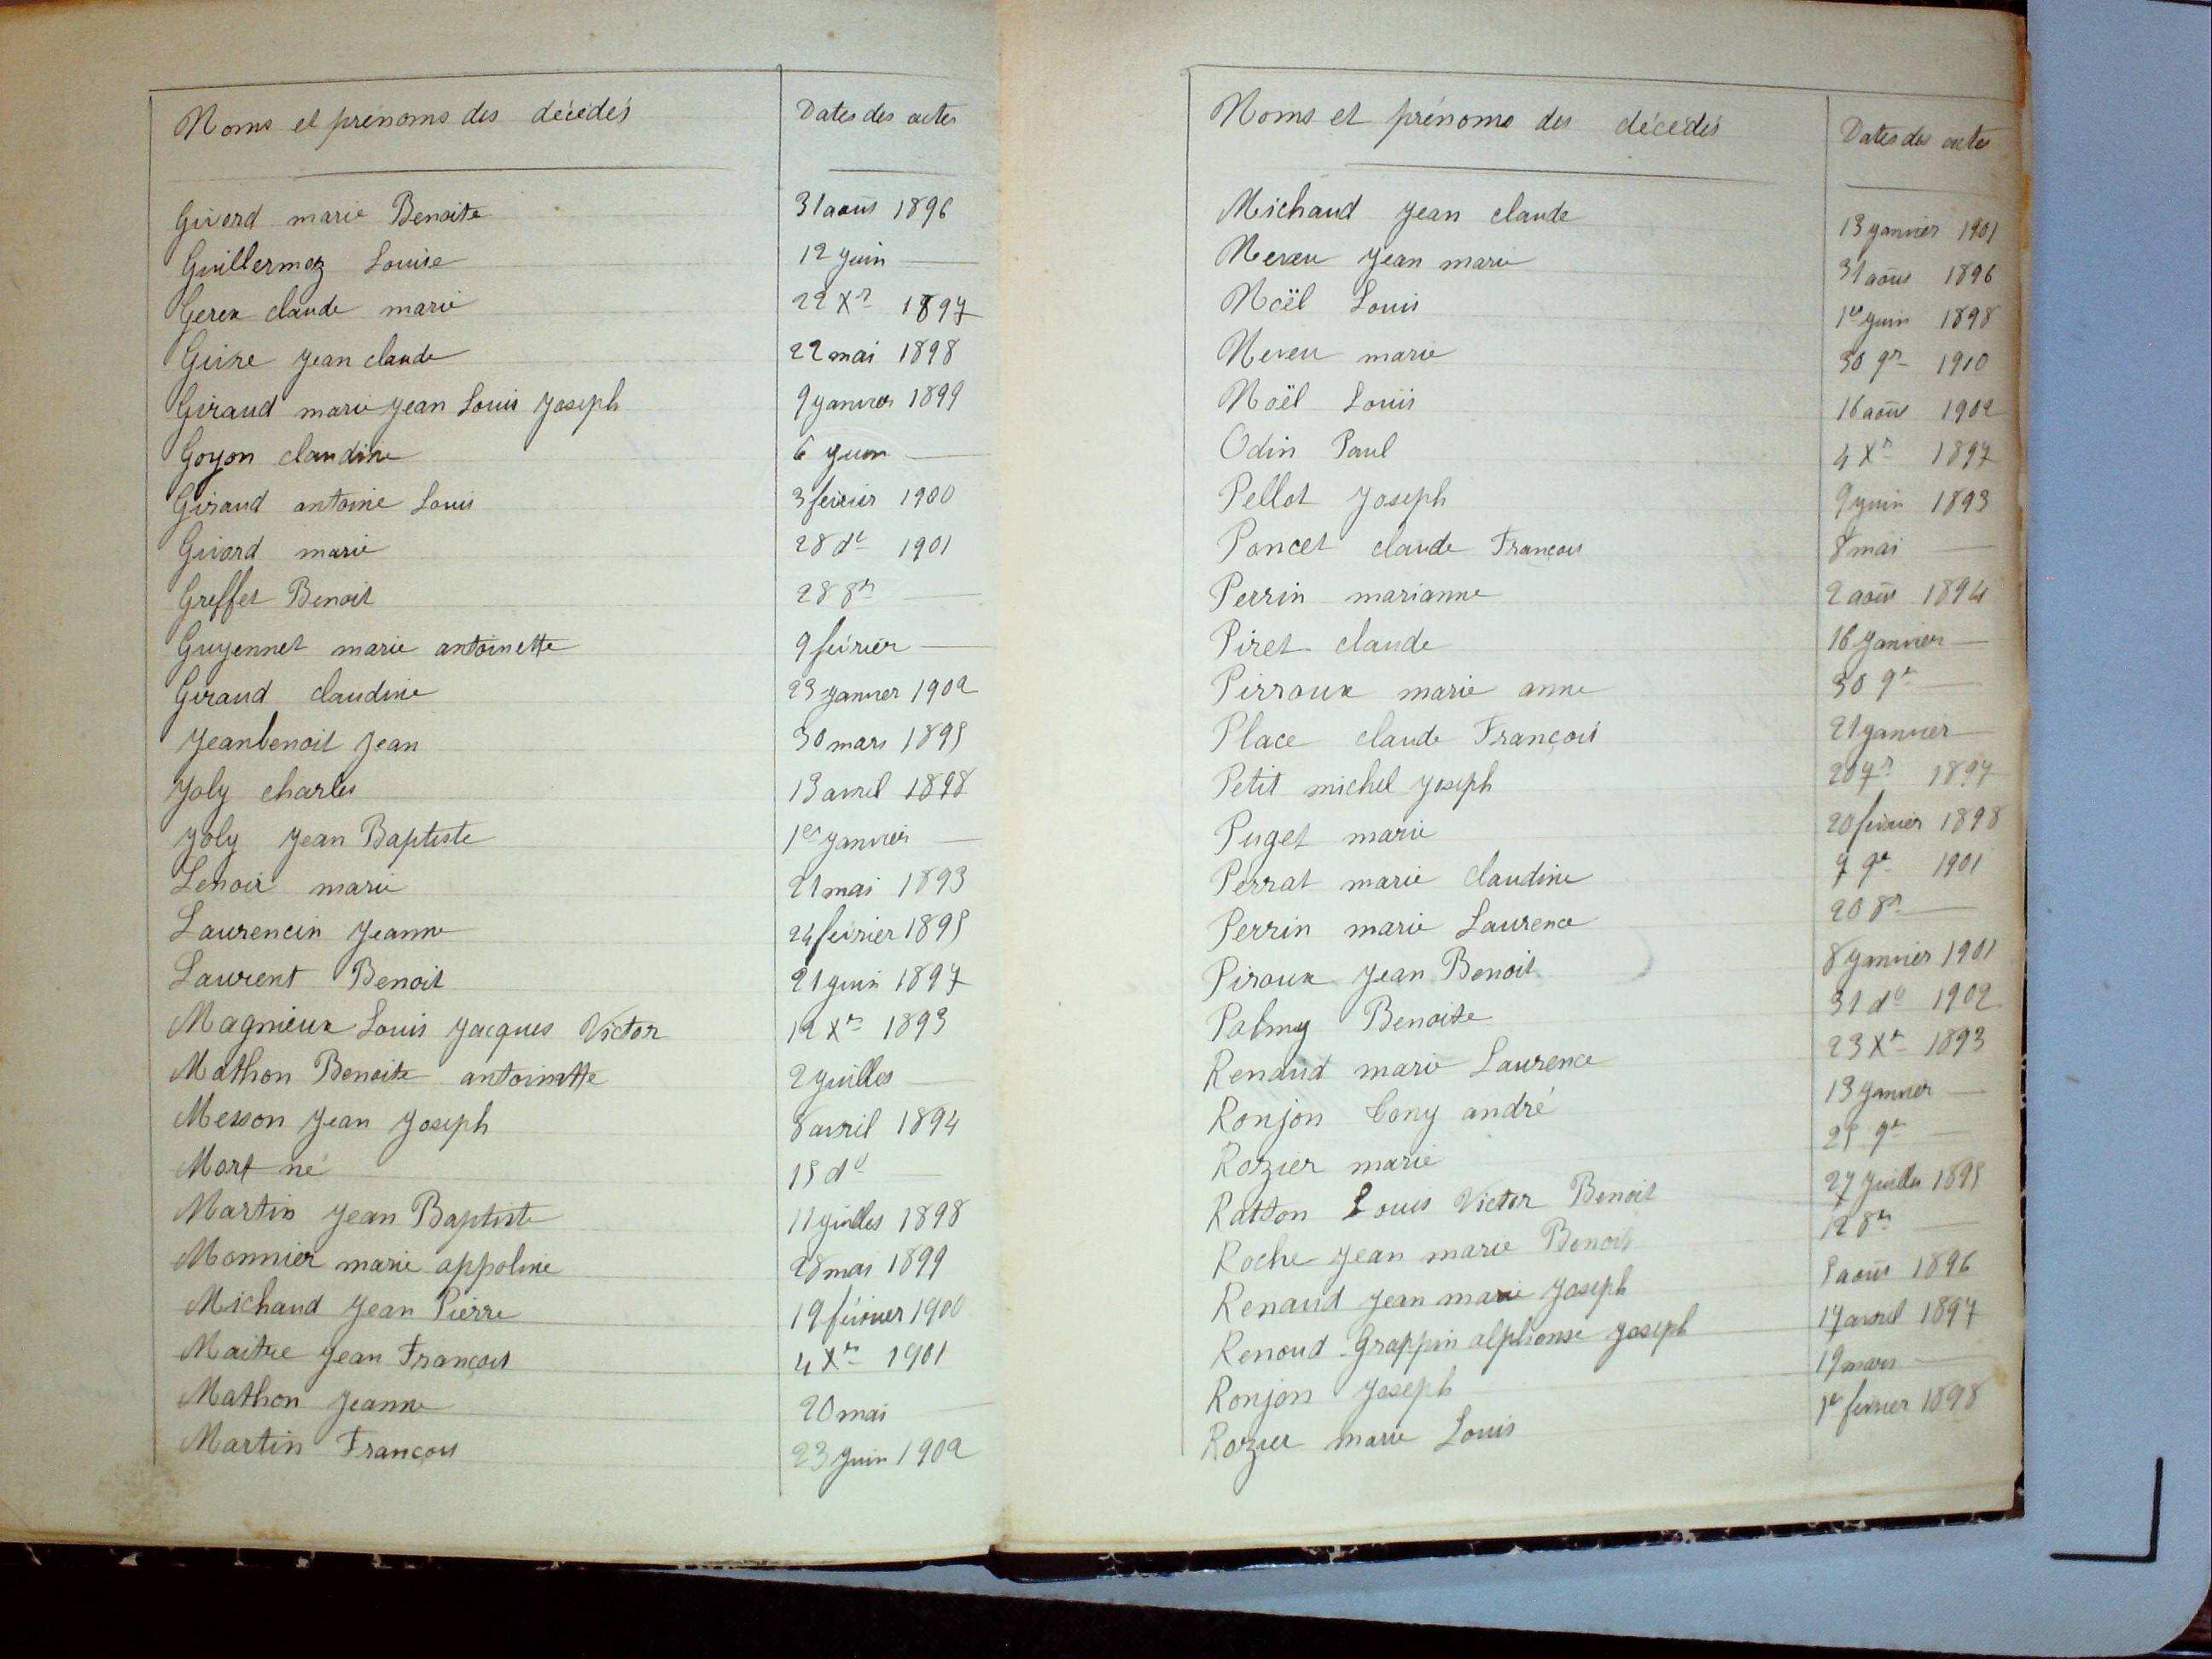 Noms et prénoms des décédés Dates des actes
Givord marie Benoite 31 aout 1896
Guillermoz Louise 12 juin —
Gerex claude marie 22 Xr 1897
Givre jean claude 22 mai 1898
Giraud marie jean Louis Joseph 9 janvier 1899
Goyon claudine 6 juin —
Giraud antoine Louis 3 février 1900
Givord marie 28 do 1901
Greffet Benoit 28 8r —
Guyennet marie antoinette 9 février —
Giraud claudine 23 janvier 1902
Jeanbenoit Jean 30 mars 1895
Joly charles 13 avril 1898
Joly Jean Baptiste 1er janvier —
Lenoir marie 21 mai 1893
Laurencin Jeanne 24 février 1895
Laurent Benoit 21 juin 1897
Magnieux Louis Jacques Victor 12 Xr 1893
Mathon Benoite antoinette 2 juillet —
Messon Jean Joseph 8 avril 1894
Mort né 15 do —
Martin Jean Baptiste 11 juillet 1898
Monnier marie appoline 28 mai 1899
Michaud Jean Pierre 19 février 1900
Maitre Jean François 4 Xr 1901
Mathon Jeanne 20 mai —
Martin François 23 juin 1902
Noms et prénoms des décédés Dates des actes
Michaud Jean claude 13 janvier 1901
Neveu Jean marie 31 aout 1896
Noël Louis 1er juin 1898
Neveu marie 30 9r 1910
Noël Louis 16 aout 1902
Odin Paul 4 Xr 1897
Pellot Joseph 9 juin 1893
Poncet claude François 8 mai —
Perrin marianne 2 aout 1894
Piret claude 16 janvier —
Pirroux marie anne 30 9r —
Place claude François 21 janvier —
Petit michel Joseph 20 7r 1897
Puget marie 20 février 1898
Perrat marie claudine 7 9r 1901
Perrin marie Laurence 20 8r —
Piroux Jean Benoit 8 janvier 1901
Palmy Benoite 31 do 1902
Renaud marie Laurence 23 Xr 1893
Ronjon Tony andré 13 janvier —
Rozier marie 25 9r —
Ratton Louis Victor Benoit 27 juillet 1895
Roche Jean marie Benoit 12 8r —
Renaud Jean marie Joseph 5 aout 1896
Renoud-Grappin alphonse Joseph 17 avril 1897
Ronjon Joseph 19 mars —
Rozier marie Louis 1er février 1898